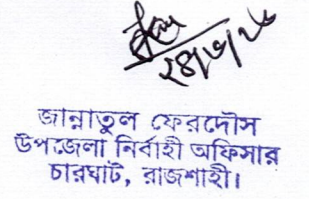 ২৪/৬/২৬
জান্নাতুল ফেরদৌস
উপজেলা নির্বাহী অফিসার
চারঘাট, রাজশাহী।